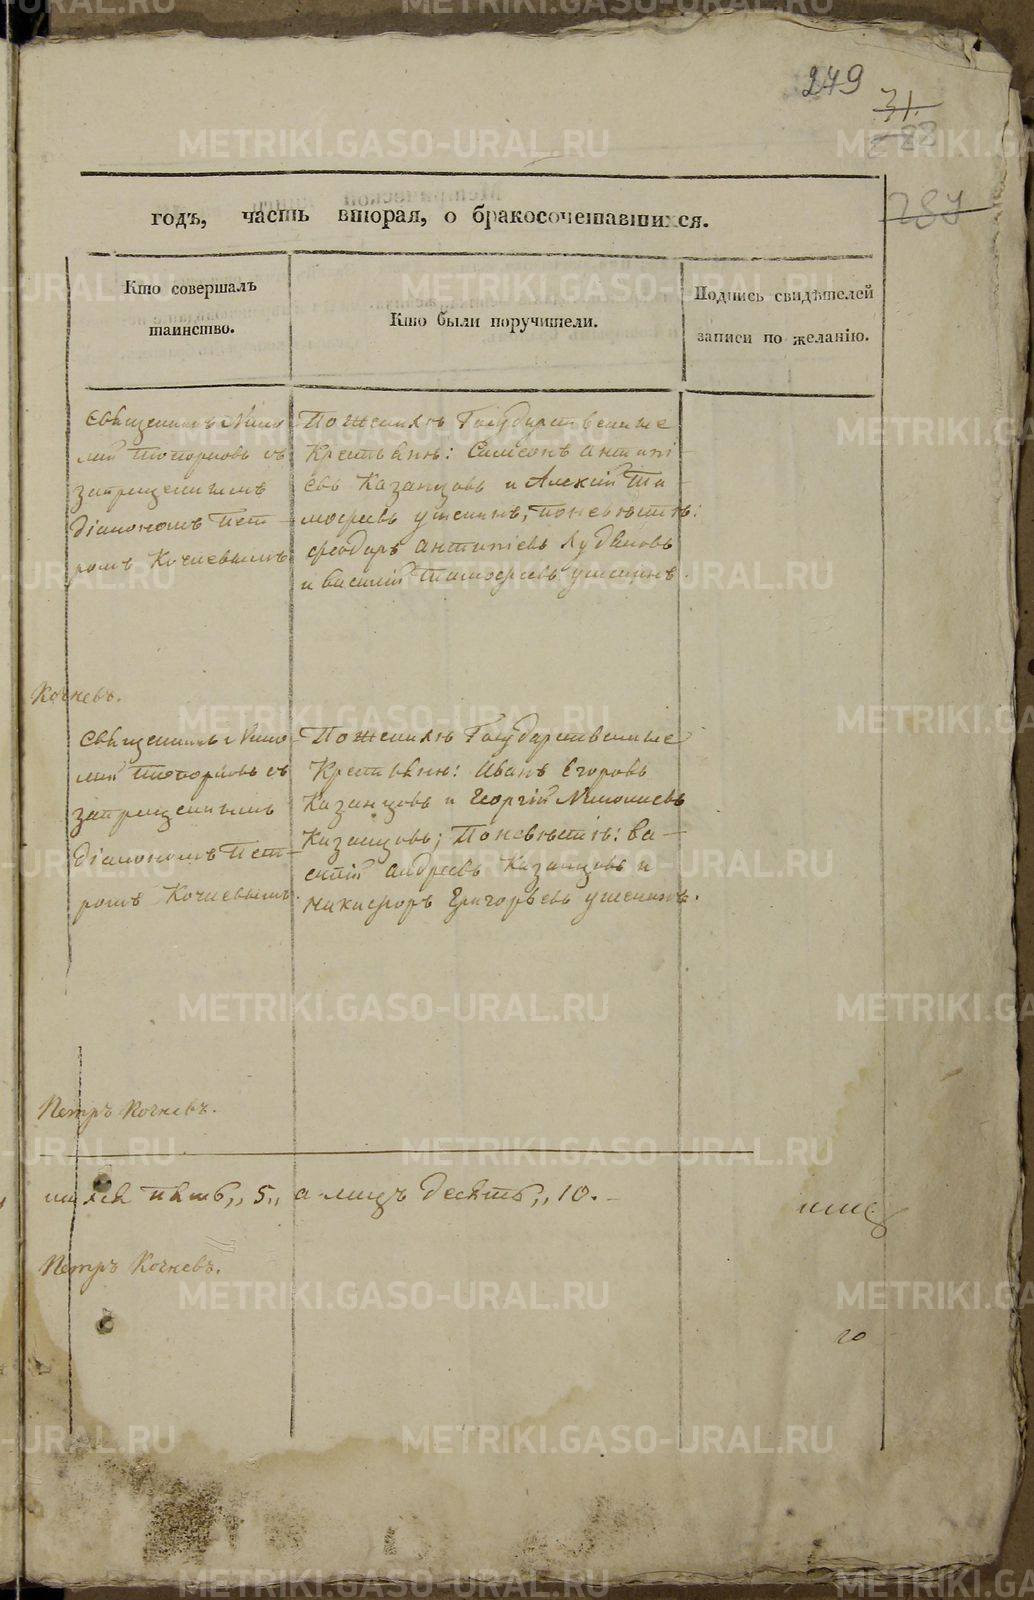 249
31.
288
287
годъ, часть вторая, о бракосочетавшихся.
Кто совершалъ
таинство.
Кто были поручители.
Подпись свидѣтелей
записи по желанію.
Священникъ Нико
лай Топорковъ съ
запрещеннымъ
діакономъ Пет-
ромъ Кочневымъ
По женихѣ Государственные
Крестьяне: Самсонъ Антипі-
евъ Казанцовъ и Алексій Ти-
мофеевъ Ушенинъ, по невѣстѣ:
Феодоръ Антипіевъ
и Василій Тимофеевъ Ушенинъ.
Кочневъ.
Священникъ Нико-
лай Топорковъ съ
запрещеннымъ
діакономъ Пет-
ромъ Кочневымъ.
По женихѣ Государственные
Крестьяне: Иванъ Егоровъ
Казанцовъ и Георгій
Казанцовъ; По невѣстѣ: Ва-
силій Андреевъ Казанцовъ и
Никифоръ Григорьевъ Ушенинъ.
Петръ Кочневъ.
пять „5„ а лицъ десять „10.-
Петръ Кочневъ.
METRIKI.GASO-URAL.RU